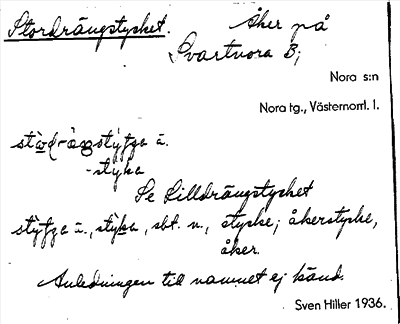 Stordrängstycket. Åker på
Svartvora B;
Nora s:n
Nora tg., Västernorrl. l.
-styka
Se Lilldrängstycket
sbt. n., stycke; åkerstycke,
åker.
Anledningen till namnet ej känd.
Sven Hiller 1936.